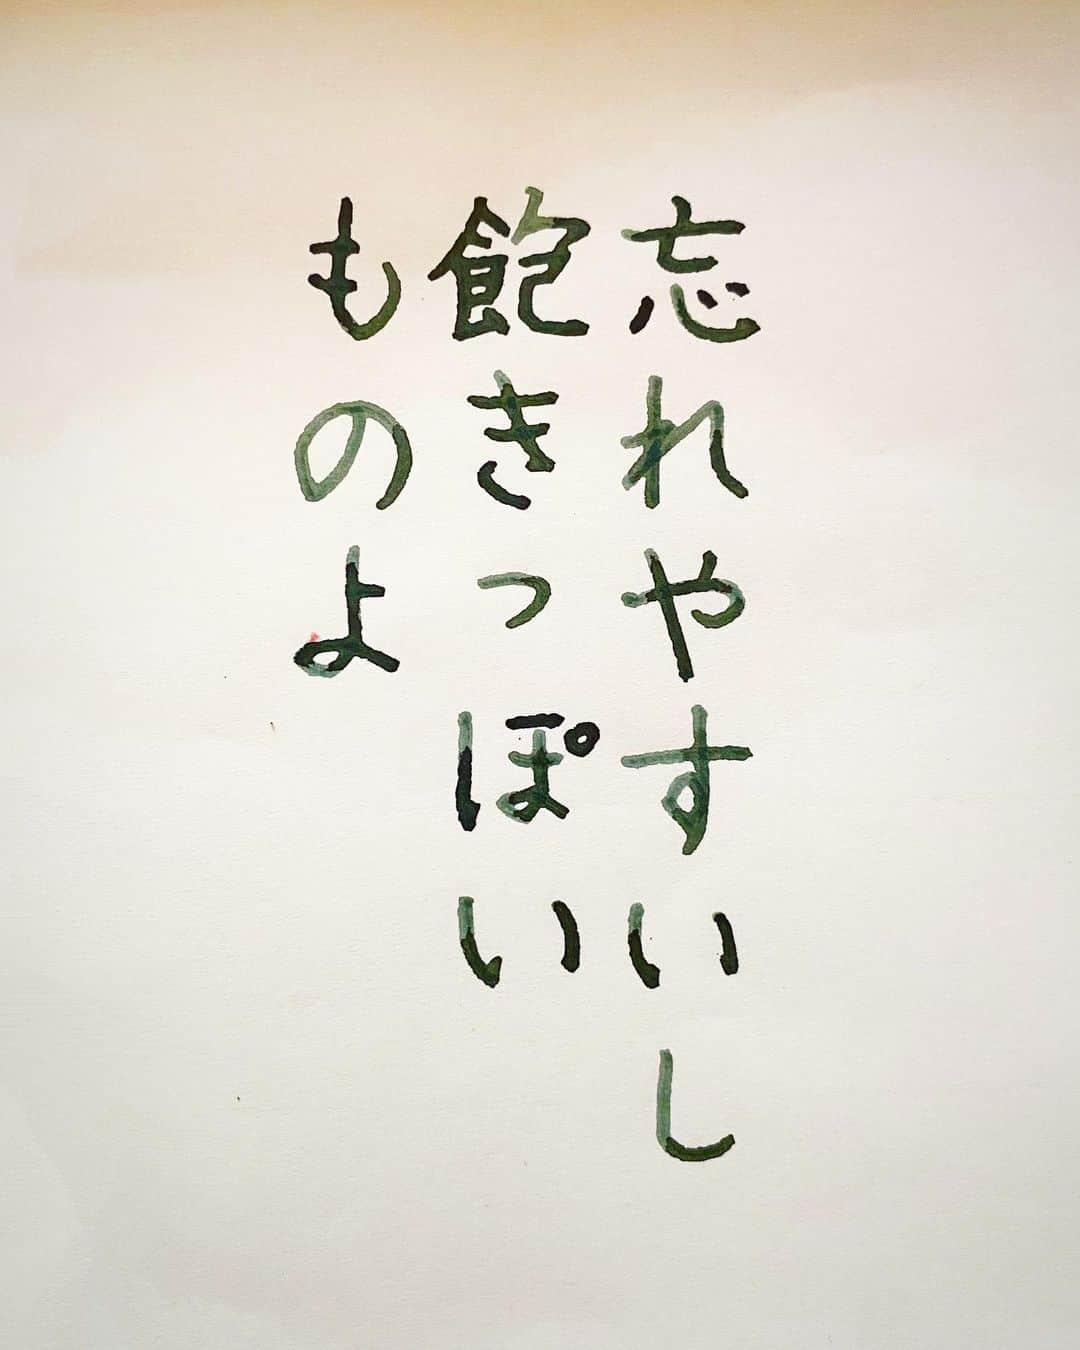 忘れやすいし
飽きっぽい
ものよ